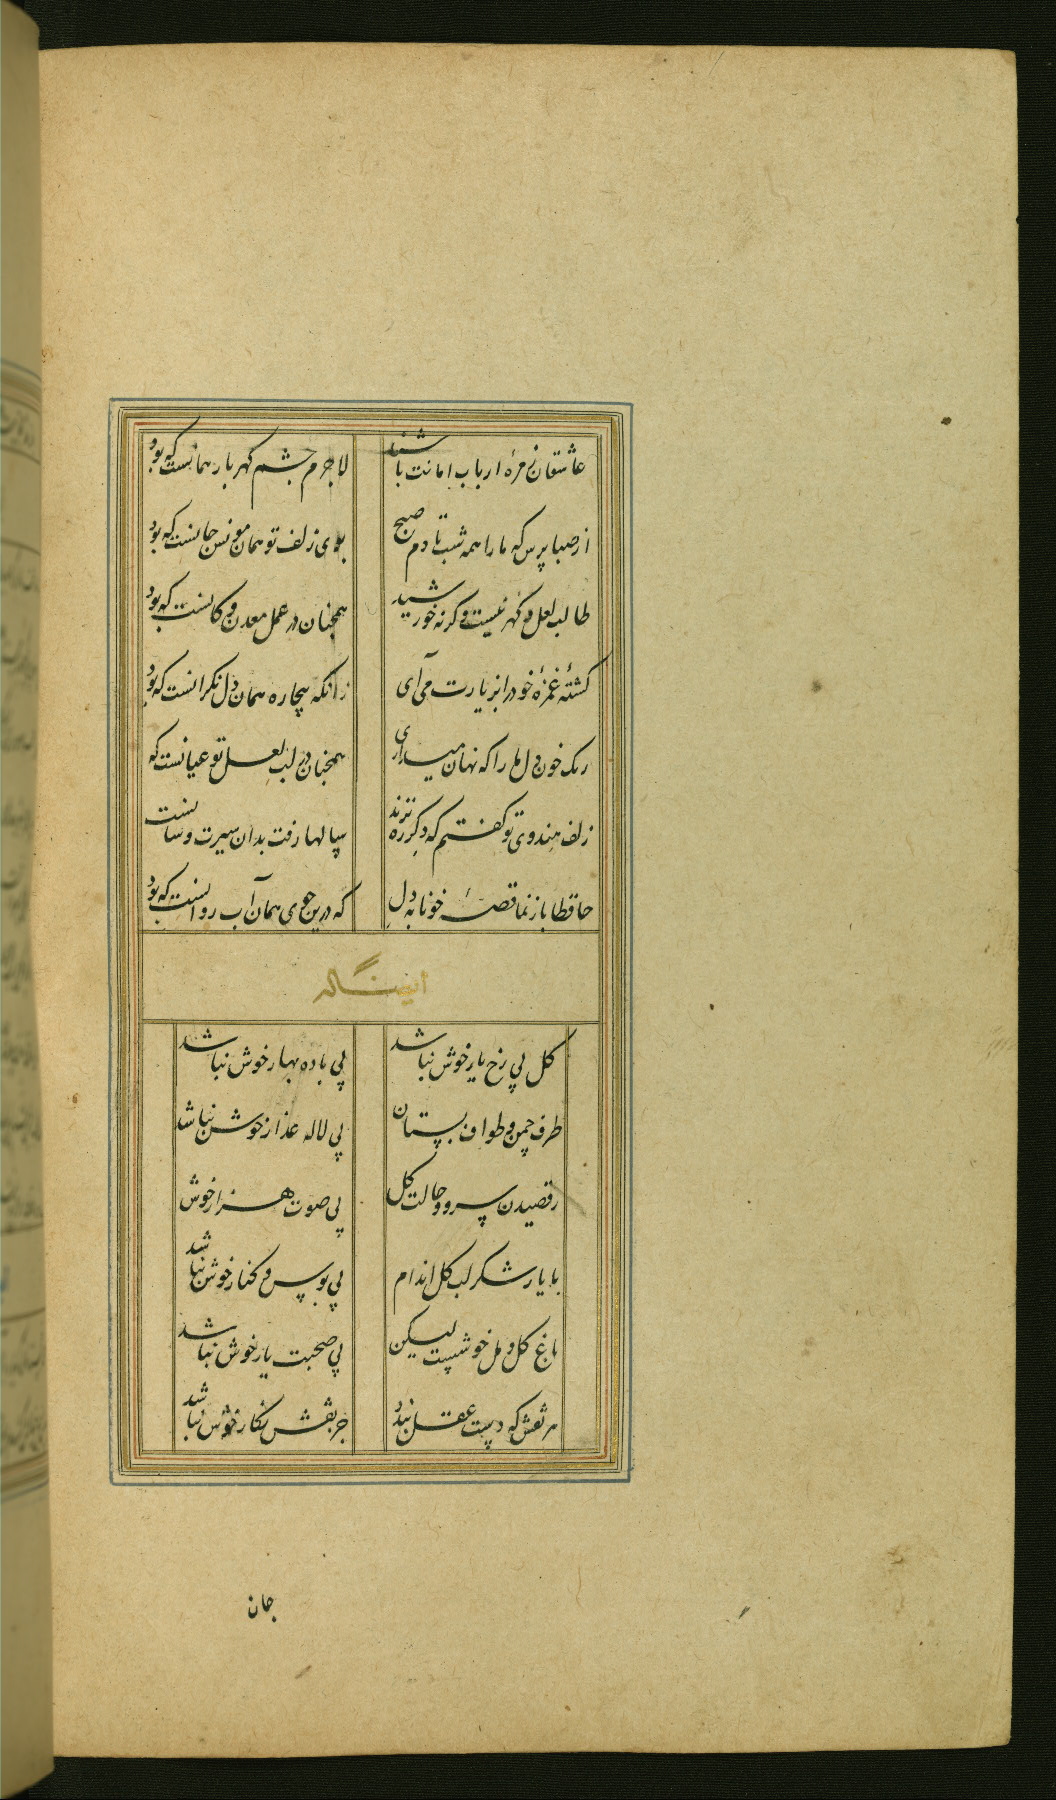 عاشقان زمرهٔ ارباب امانت باشند
لاجرم چشم کهر بار همانست که بود
از صبا پرس که ما را همه شب تا دم صبح
بوی زلف تو همان مونس جانست که بود
طالب لعل و کهر نیست وکرنه خورشید
همچنان در عمل معدن و کانست که بود
کشتهٔ غمزهٔ خود را بزیارت می آی
زانکه بیچاره همان دل نکرانست که بود
رنک خون دل ما را که نهان میداری
همچنان در لب لعل تو عیانست که
زلف هندوی تو کفتم که دکر ره نزند
سالها رفت بدان سیرت و سانست
حافظا باز نما قصهٔ خونابه دل
که درین جوی همان آب روانست که بود
ایضا له
کل بی رخ یار خوش نباشد
بی باده بهار خوش نباشد
طرف چمن و طواف بستان
بی لاله عذار خوش نباشد
رقصیدن سرو و حالت کل
بی صوت هزار خوش
با یار شکر لب کل اندام
بی بوس و کنار خوش نباشد
باغ کل و مل خوشست لیکن
بی صحبت یار خوش نباشد
هر نقش که دست عقل بندد
جز نقش نکار خوش نباشد
جان